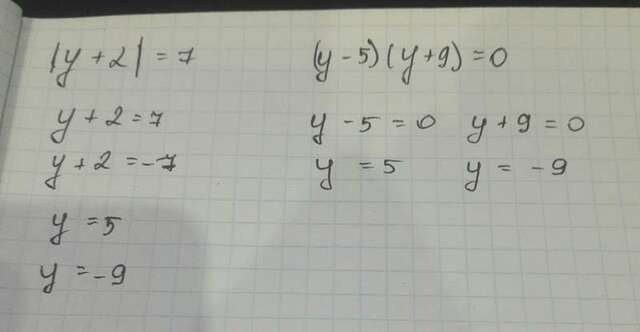 |y + 2| = 7
y + 2 = 7
y + 2 = -7
y = 5
y = -9
(y - 5)(y + 9) = 0
y - 5 = 0 y + 9 = 0
y = 5 y = -9